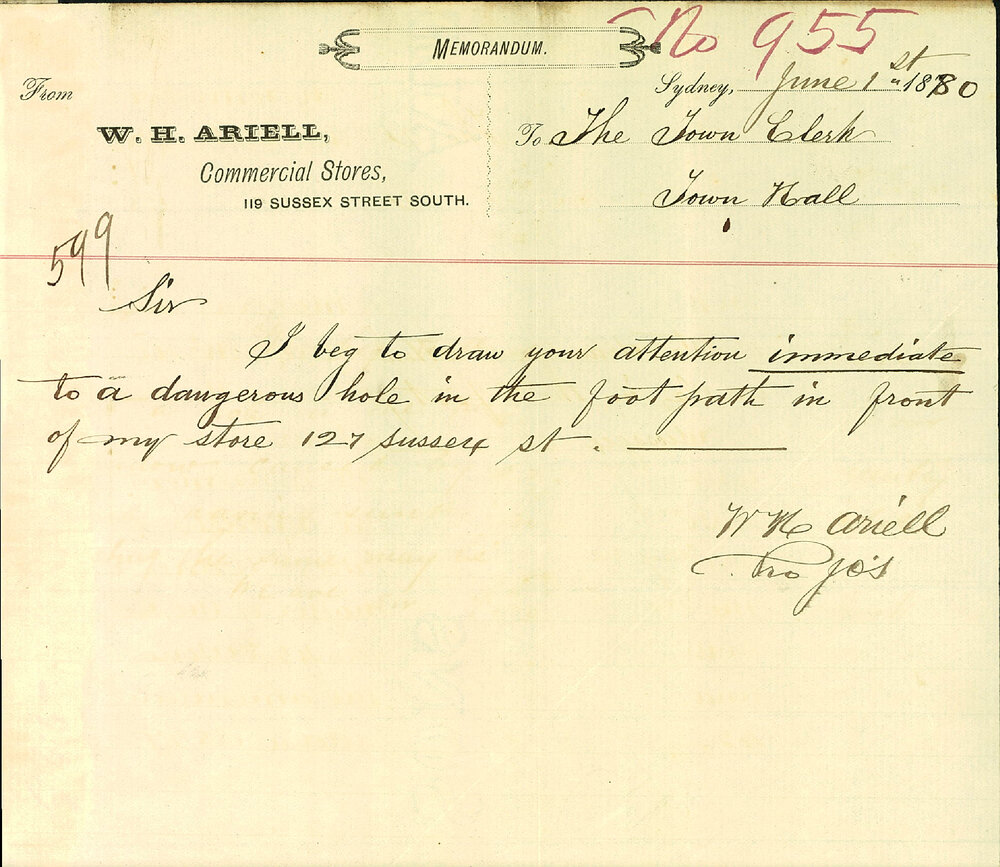 MEMORANDUM.
No 955
Sydney, June 1st 1880
From
W. H. ARIELL,
To The Town Clerk
Commercial Stores,
Town Hall
119 SUSSEX STREET SOUTH.
599
Sir
I beg to draw your attention immediate
to a dangerous hole in the foot path in front
of my store 127 Sussex st.
W H Ariell
Pro